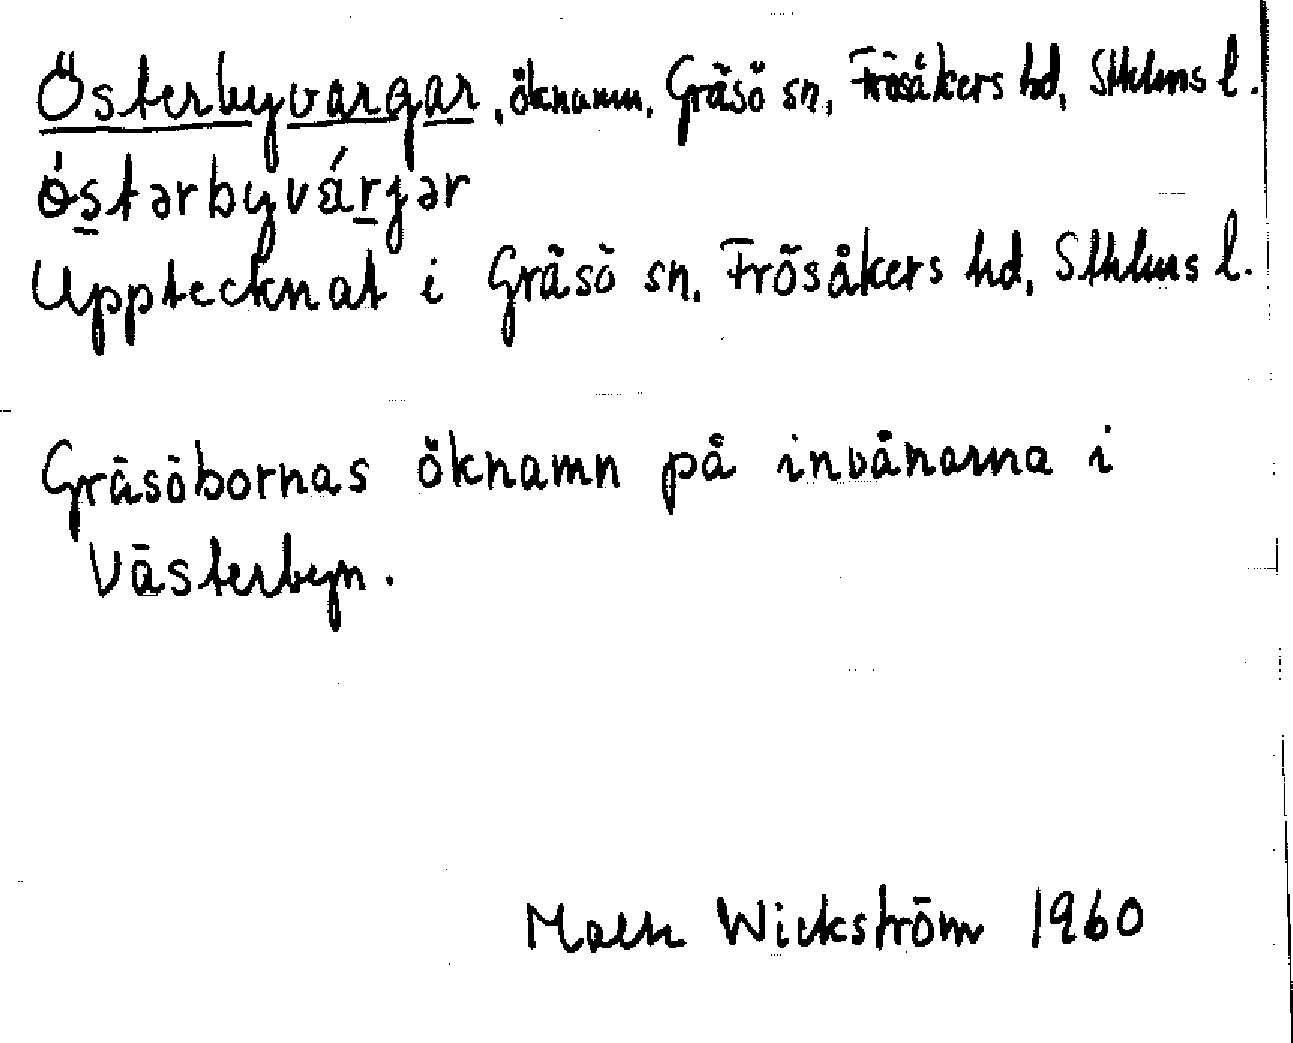 Österbyvargar, öknamn, Gräsö sn, Frösåkers hd, Sthlms l.
ǿstərbyvárjər
Upptecknat i Gräsö sn, Frösåkers hd, Sthlms l.
Gräsöbornas öknamn på invånarna i
Västerbyn.
Wickström 1960